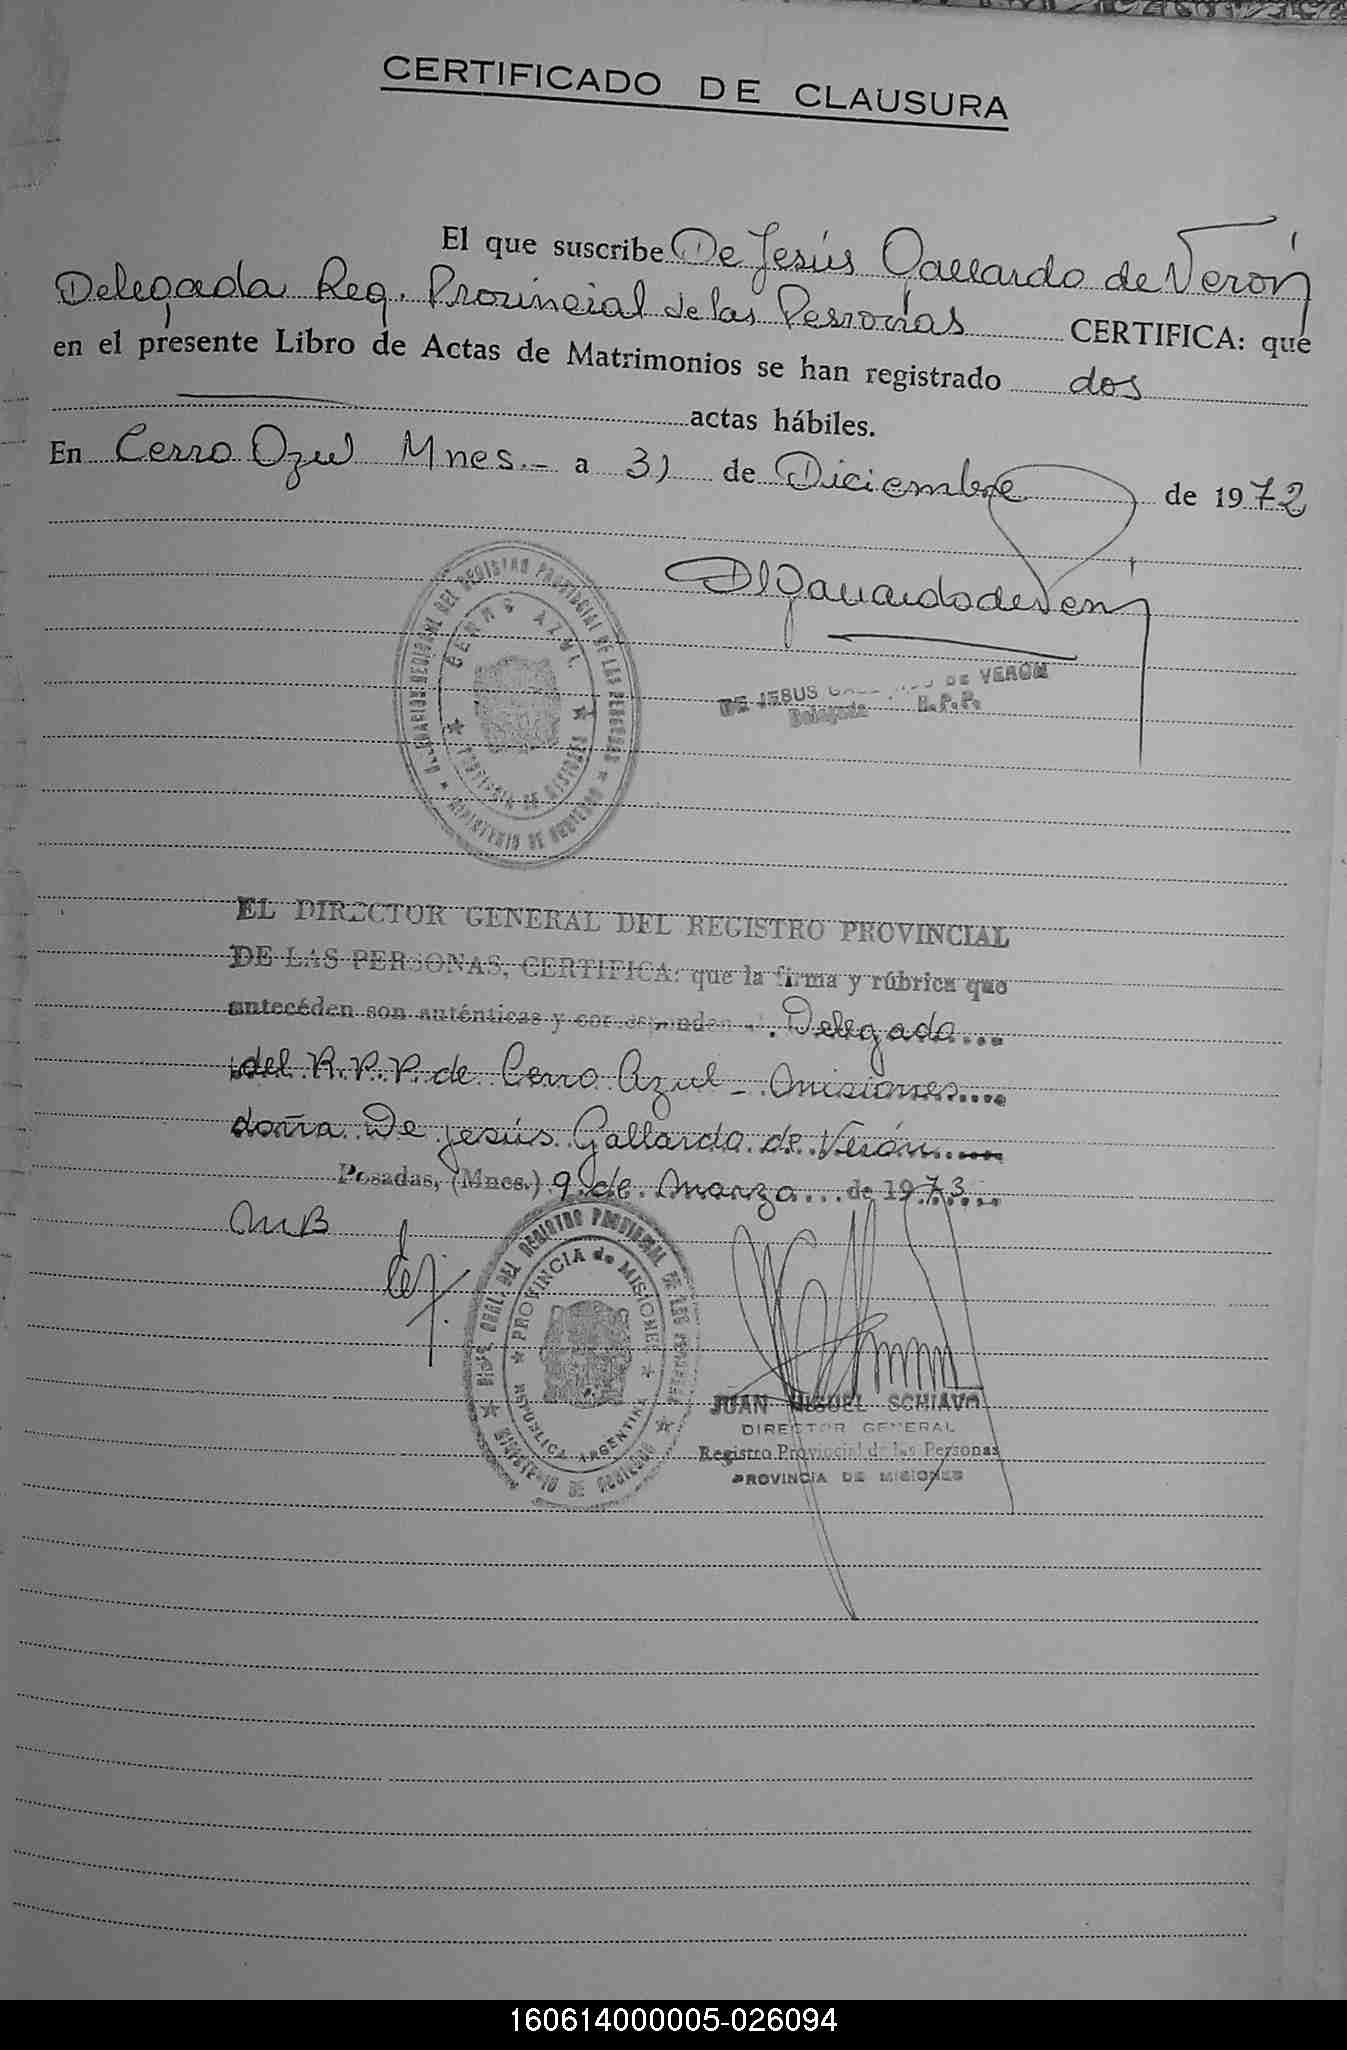 CERTIFICADO DE CLAUSURA
El que suscribe De Jesús Gallardo de Verón
Delegada Reg. Provincial de las Personas CERTIFICA: que
en el presente Libro de Actas de Matrimonios se han registrado dos
actas hábiles.
En Cerro Azul Mnes.- a 31 de Diciembre de 1972
DJGallardodeVerón
DE JESUS GALLARDO DE VERON
Delegada R.P.P.
DELEGACION REGIONAL DEL REGISTRO PROVINCIAL DE LAS PERSONAS
CERRO AZUL
PROVINCIA DE MISIONES
MINISTERIO DE GOBIERNO
EL DIRECTOR GENERAL DEL REGISTRO PROVINCIAL
DE LAS PERSONAS, CERTIFICA: que la firma y rúbrica que
antecéden son auténticas y corresponden a Delegada
del R.P.P. de Cerro Azul - Misiones
doña De Jesús Gallardo de Verón
Posadas, (Mnes.) 9 de marzo de 1973
MB
DIR. GRAL. DEL REGISTRO PROVINCIAL DE LAS PERSONAS
PROVINCIA de MISIONES
REPUBLICA ARGENTINA
MINISTERIO DE GOBIERNO
JUAN MIGUEL SCHIAVO
DIRECTOR GENERAL
Registro Provincial de las Personas
PROVINCIA DE MISIONES
160614000005-026094